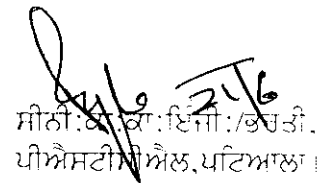 21/6
ਸੀਨੀ:ਕਾ:ਕਾ:ਇੰਜੀ:/ਭਰਤੀ,
ਪੀਐਸਟੀਸੀਐਲ,ਪਟਿਆਲਾ।